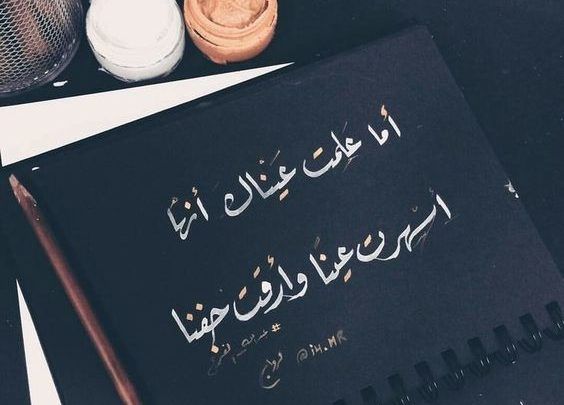 أما عَلِمت عَيْناك أنها
أسهرت عيناً وأرقت جفننا
@i4.MR